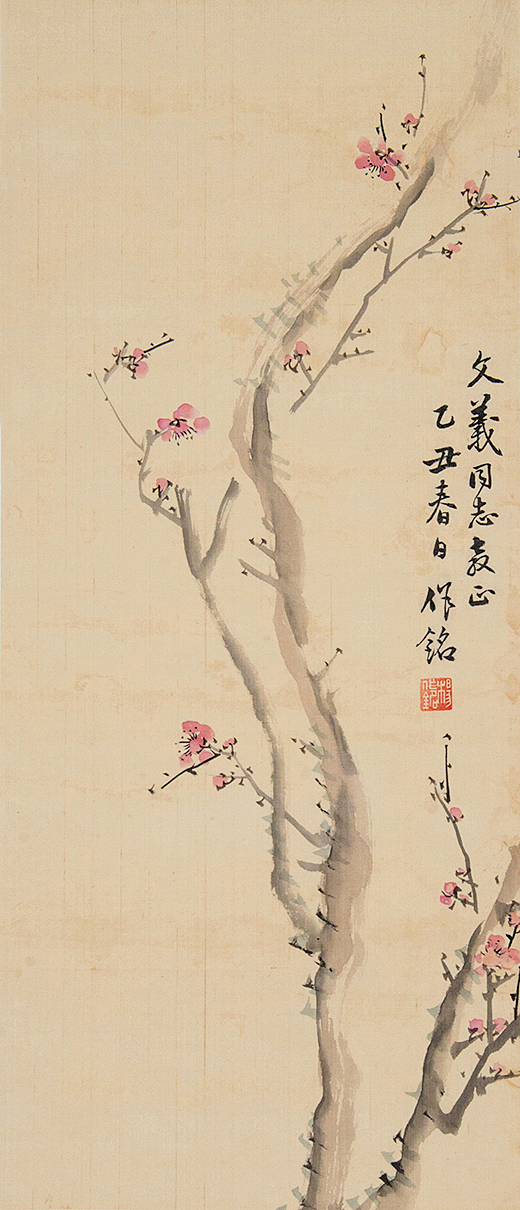 文義同志教正
乙丑春日作銘